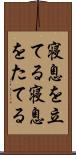 寝息を立
てる寝息
をたてる